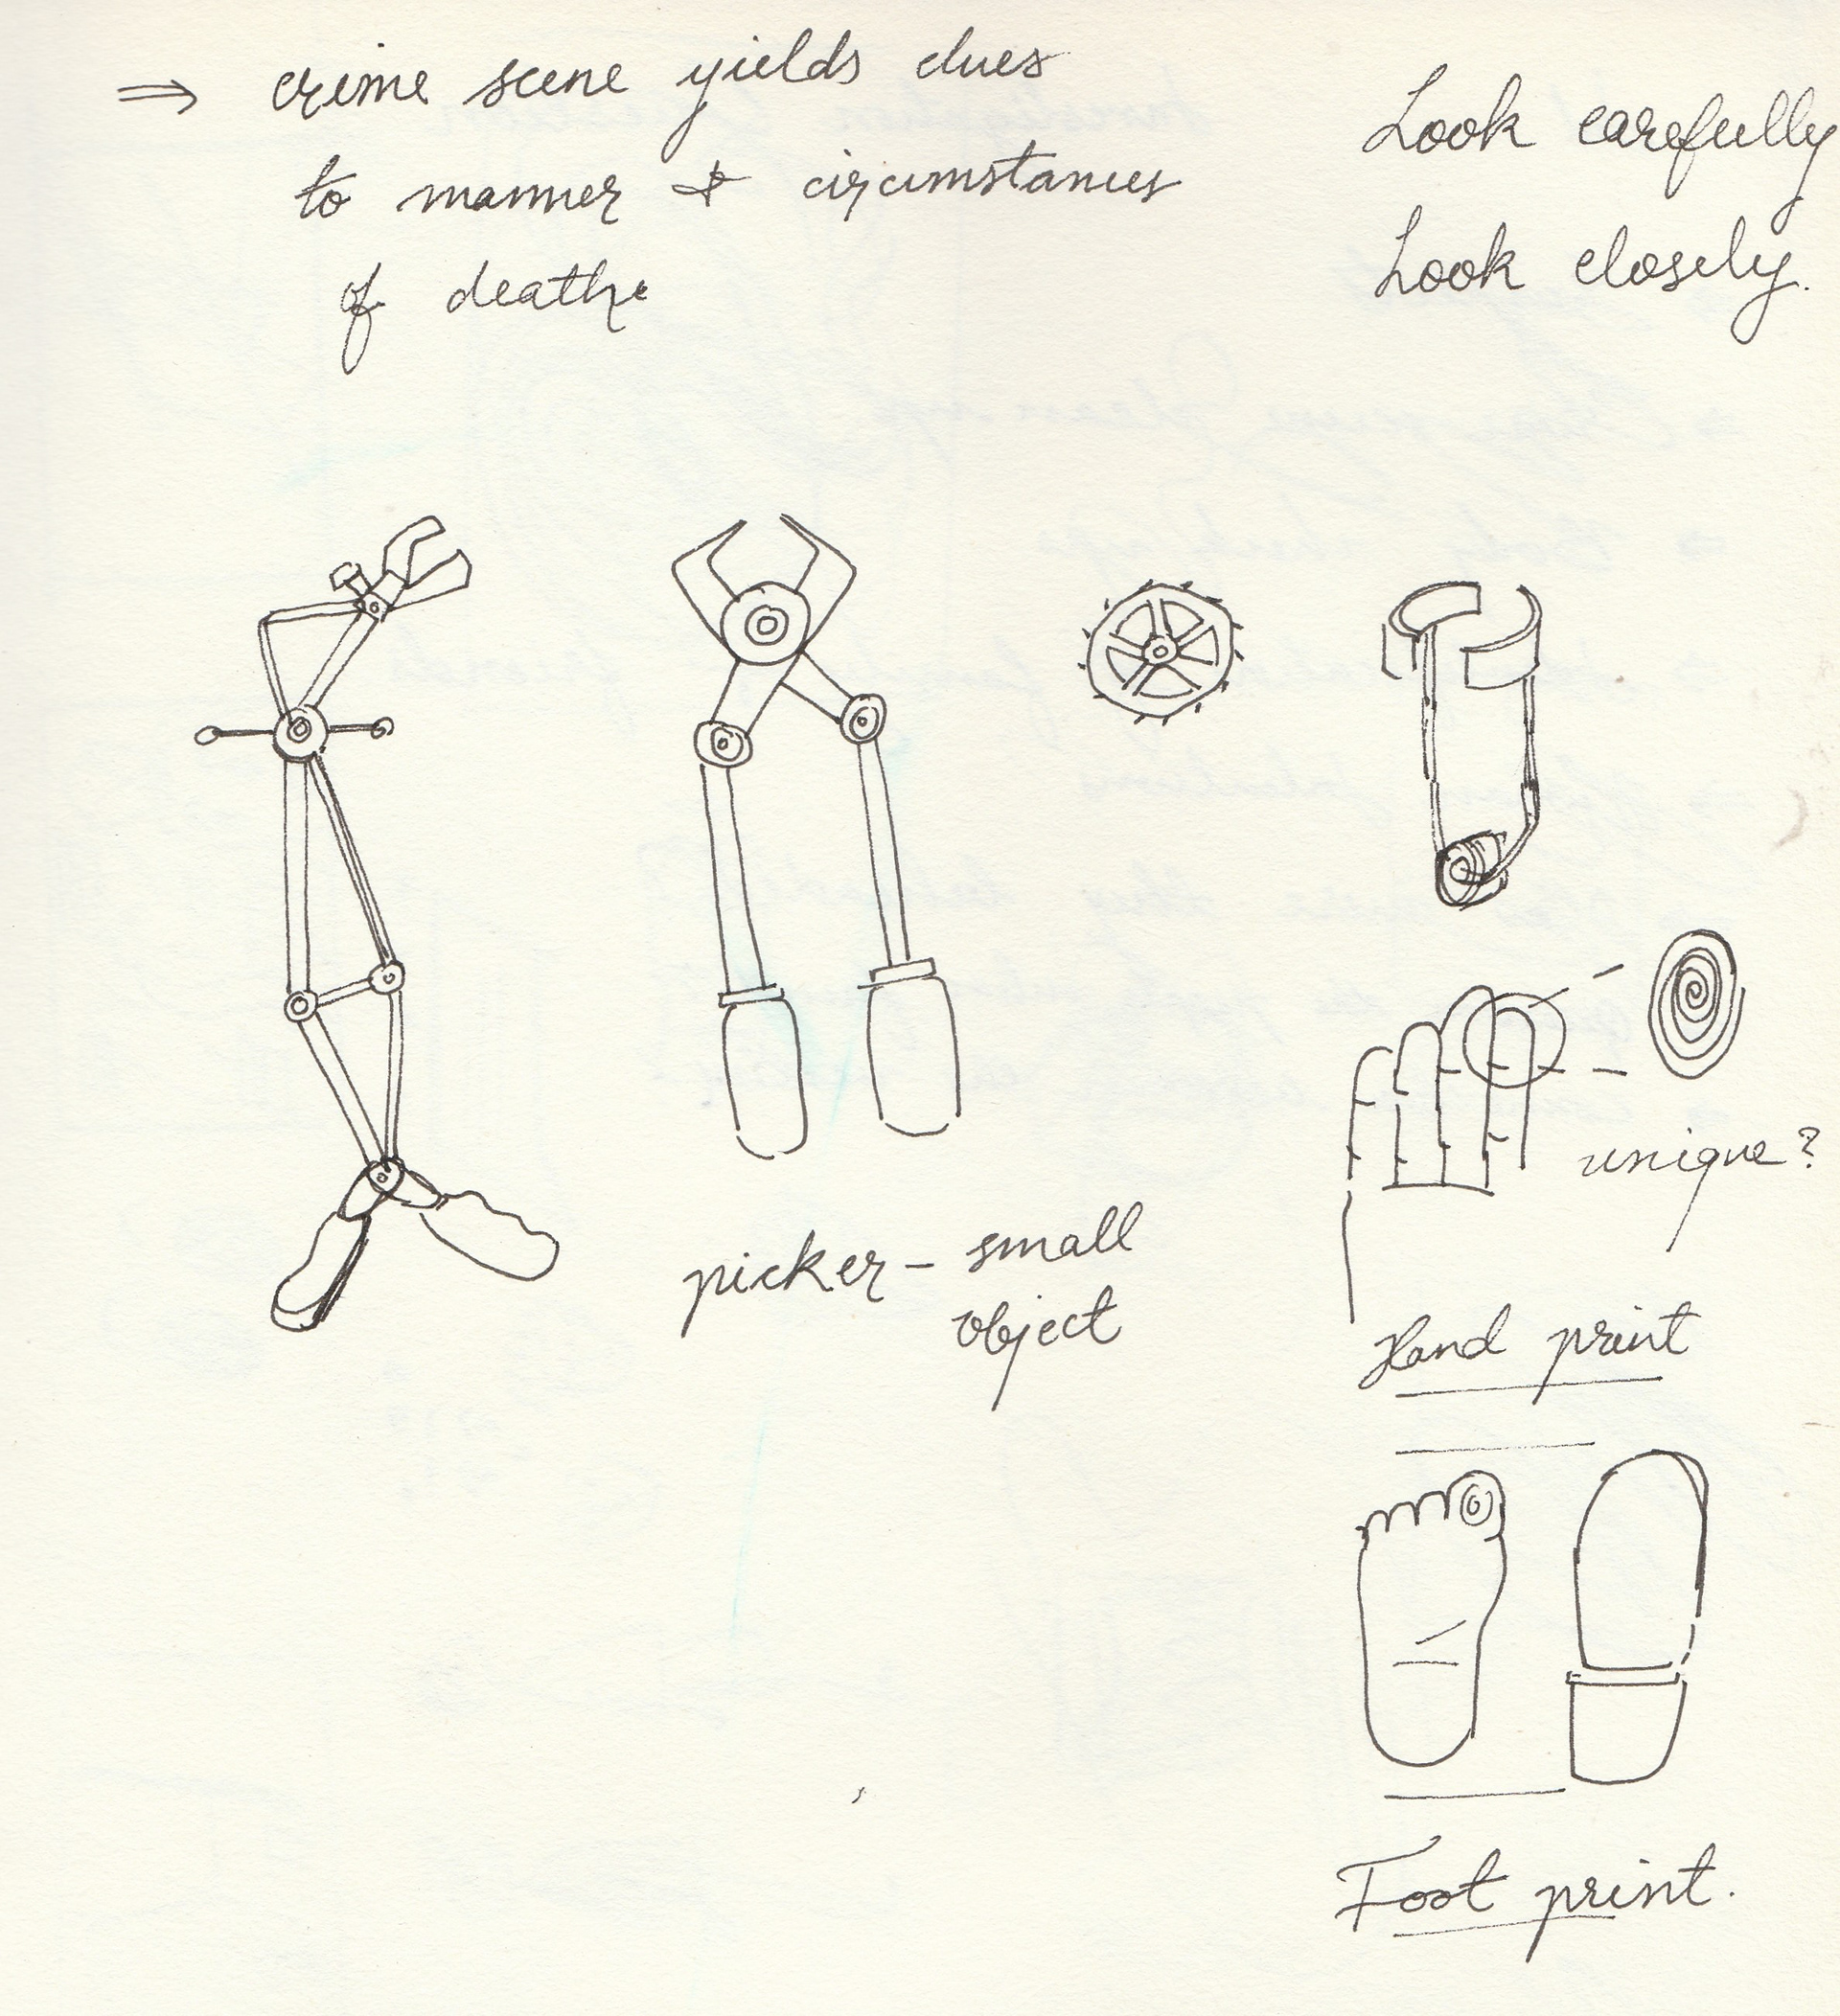 ⇒ crime scene yields clues
to manner & circumstances
of death.
Look carefully
Look closely.
picker - small
object
unique?
Hand print
Foot print.